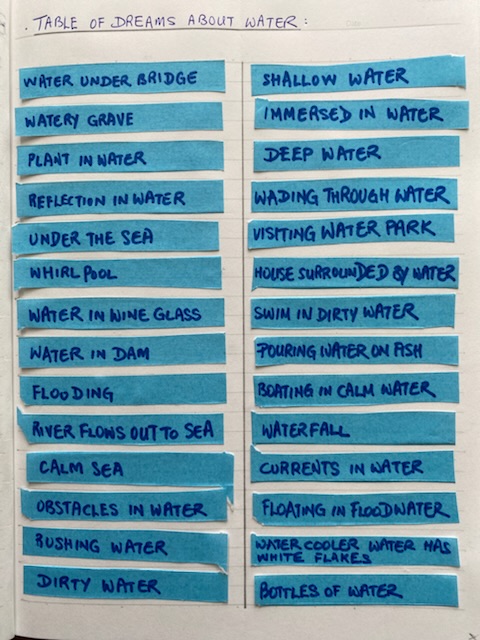 . TABLE OF DREAMS ABOUT WATER :
WATER UNDER BRIDGE
WATERY GRAVE
PLANT IN WATER
REFLECTION IN WATER
UNDER THE SEA
WHIRLPOOL
WATER IN WINE GLASS
WATER IN DAM
FLOODING
RIVER FLOWS OUT TO SEA
CALM SEA
OBSTACLES IN WATER
RUSHING WATER
DIRTY WATER
SHALLOW WATER
IMMERSED IN WATER
DEEP WATER
WADING THROUGH WATER
VISITING WATER PARK
HOUSE SURROUNDED BY WATER
SWIM IN DIRTY WATER
POURING WATER ON ASH
BOATING IN CALM WATER
WATERFALL
CURRENTS IN WATER
FLOATING IN FLOODWATER
WATER COOLER WATER HAS
WHITE FLAKES
BOTTLES OF WATER